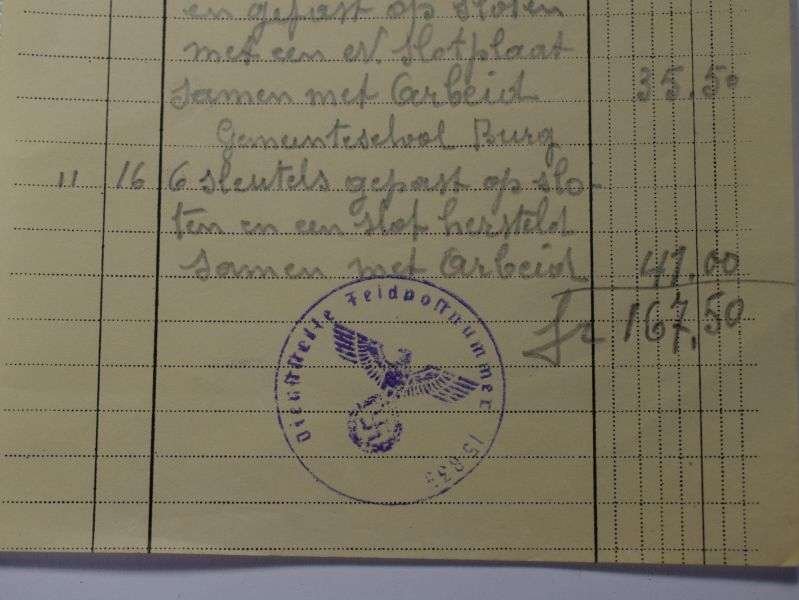 en gepast op sloten
met een eN. slotplaat
samen met Arbeid 35.50
Gemeenteschool Burg
11 16 6 sleutels gepast op slo-
ten en een slot hersteld
samen met Arbeid 41.00
fr 167,50
Dienststelle Feldpostnummer